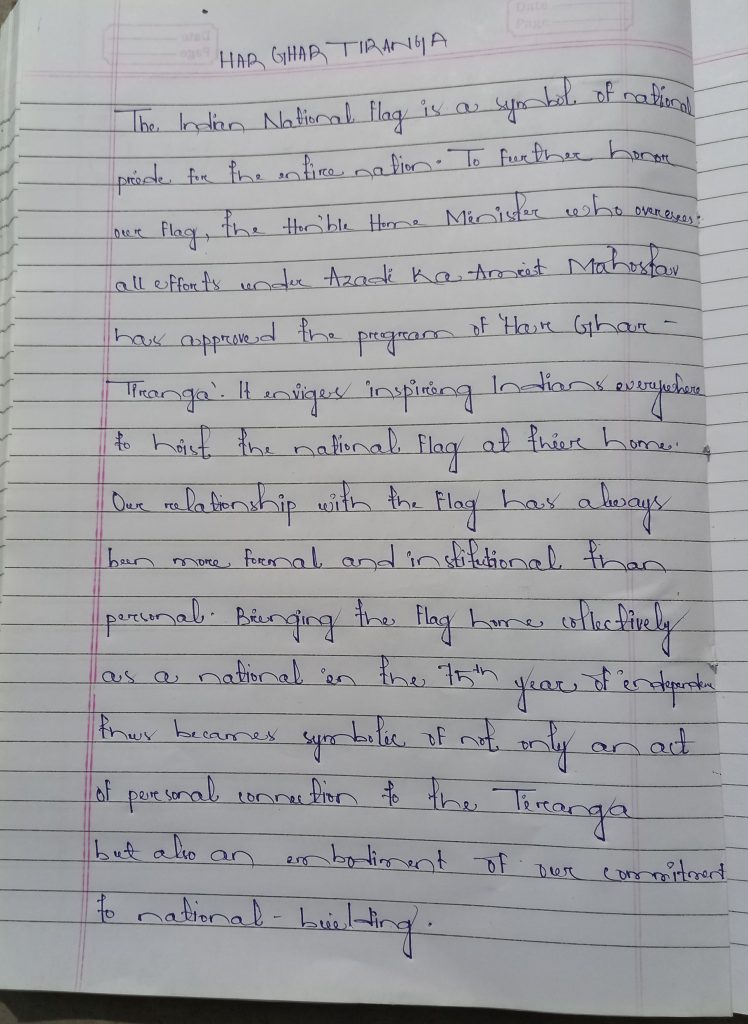 Date
Page
HAR GHAR TIRANGA
The Indian National Flag is a symbol of national
pride for the entire nation. To further honor
our flag, the Hon'ble Home Minister who oversees
all efforts under Azadi Ka Amrit Mahostav
has approved the program of 'Har Ghar -
Tiranga'. It enviges inspiring Indians everywhere
to hoist the national flag at their home.
Our relationship with the Flag has always
been more formal and institutional than
personal. Bringing the flag home collectively
as a national in the 75th year of independence
thus becames symbolic of not only an act
of personal connection to the Tiranga
but also an embodiment of our commitment
to national - building.